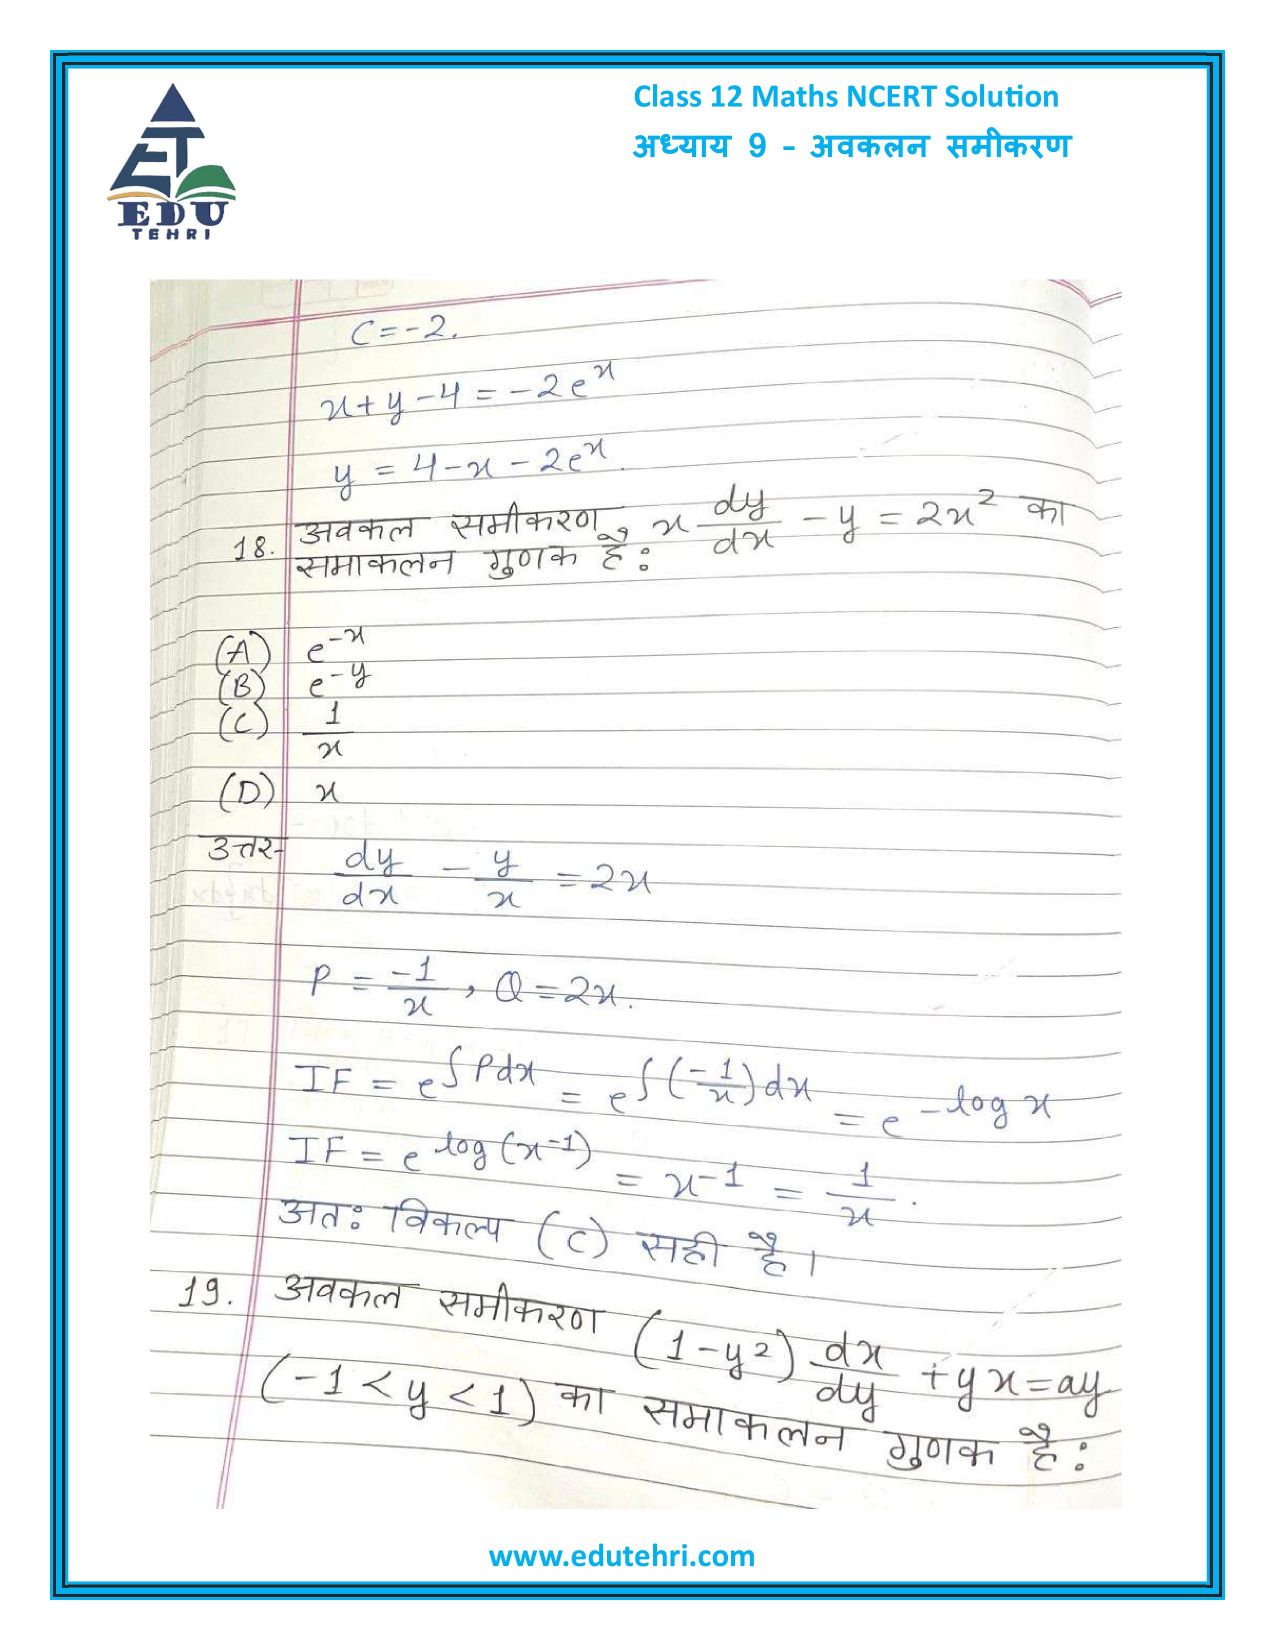 Class 12 Maths NCERT Solution
अध्याय 9 - अवकलन समीकरण
EDU
TEHRI
C = -2.
x + y - 4 = -2e^x
y = 4 - x - 2e^x.
18. अवकल समीकरण x dy/dx - y = 2x² का
समाकलन गुणक है:
(A) e^-x
(B) e^-y
(C) 1/x
(D) x
उत्तर- dy/dx - y/x = 2x
P = -1/x, Q = 2x.
IF = e^∫Pdx = e^∫(-1/x)dx = e^-log x
IF = e^log(x^-1) = x^-1 = 1/x.
अतः विकल्प (C) सही है।
19. अवकल समीकरण (1-y²) dx/dy + yx = ay
(-1 < y < 1) का समाकलन गुणक है:
www.edutehri.com